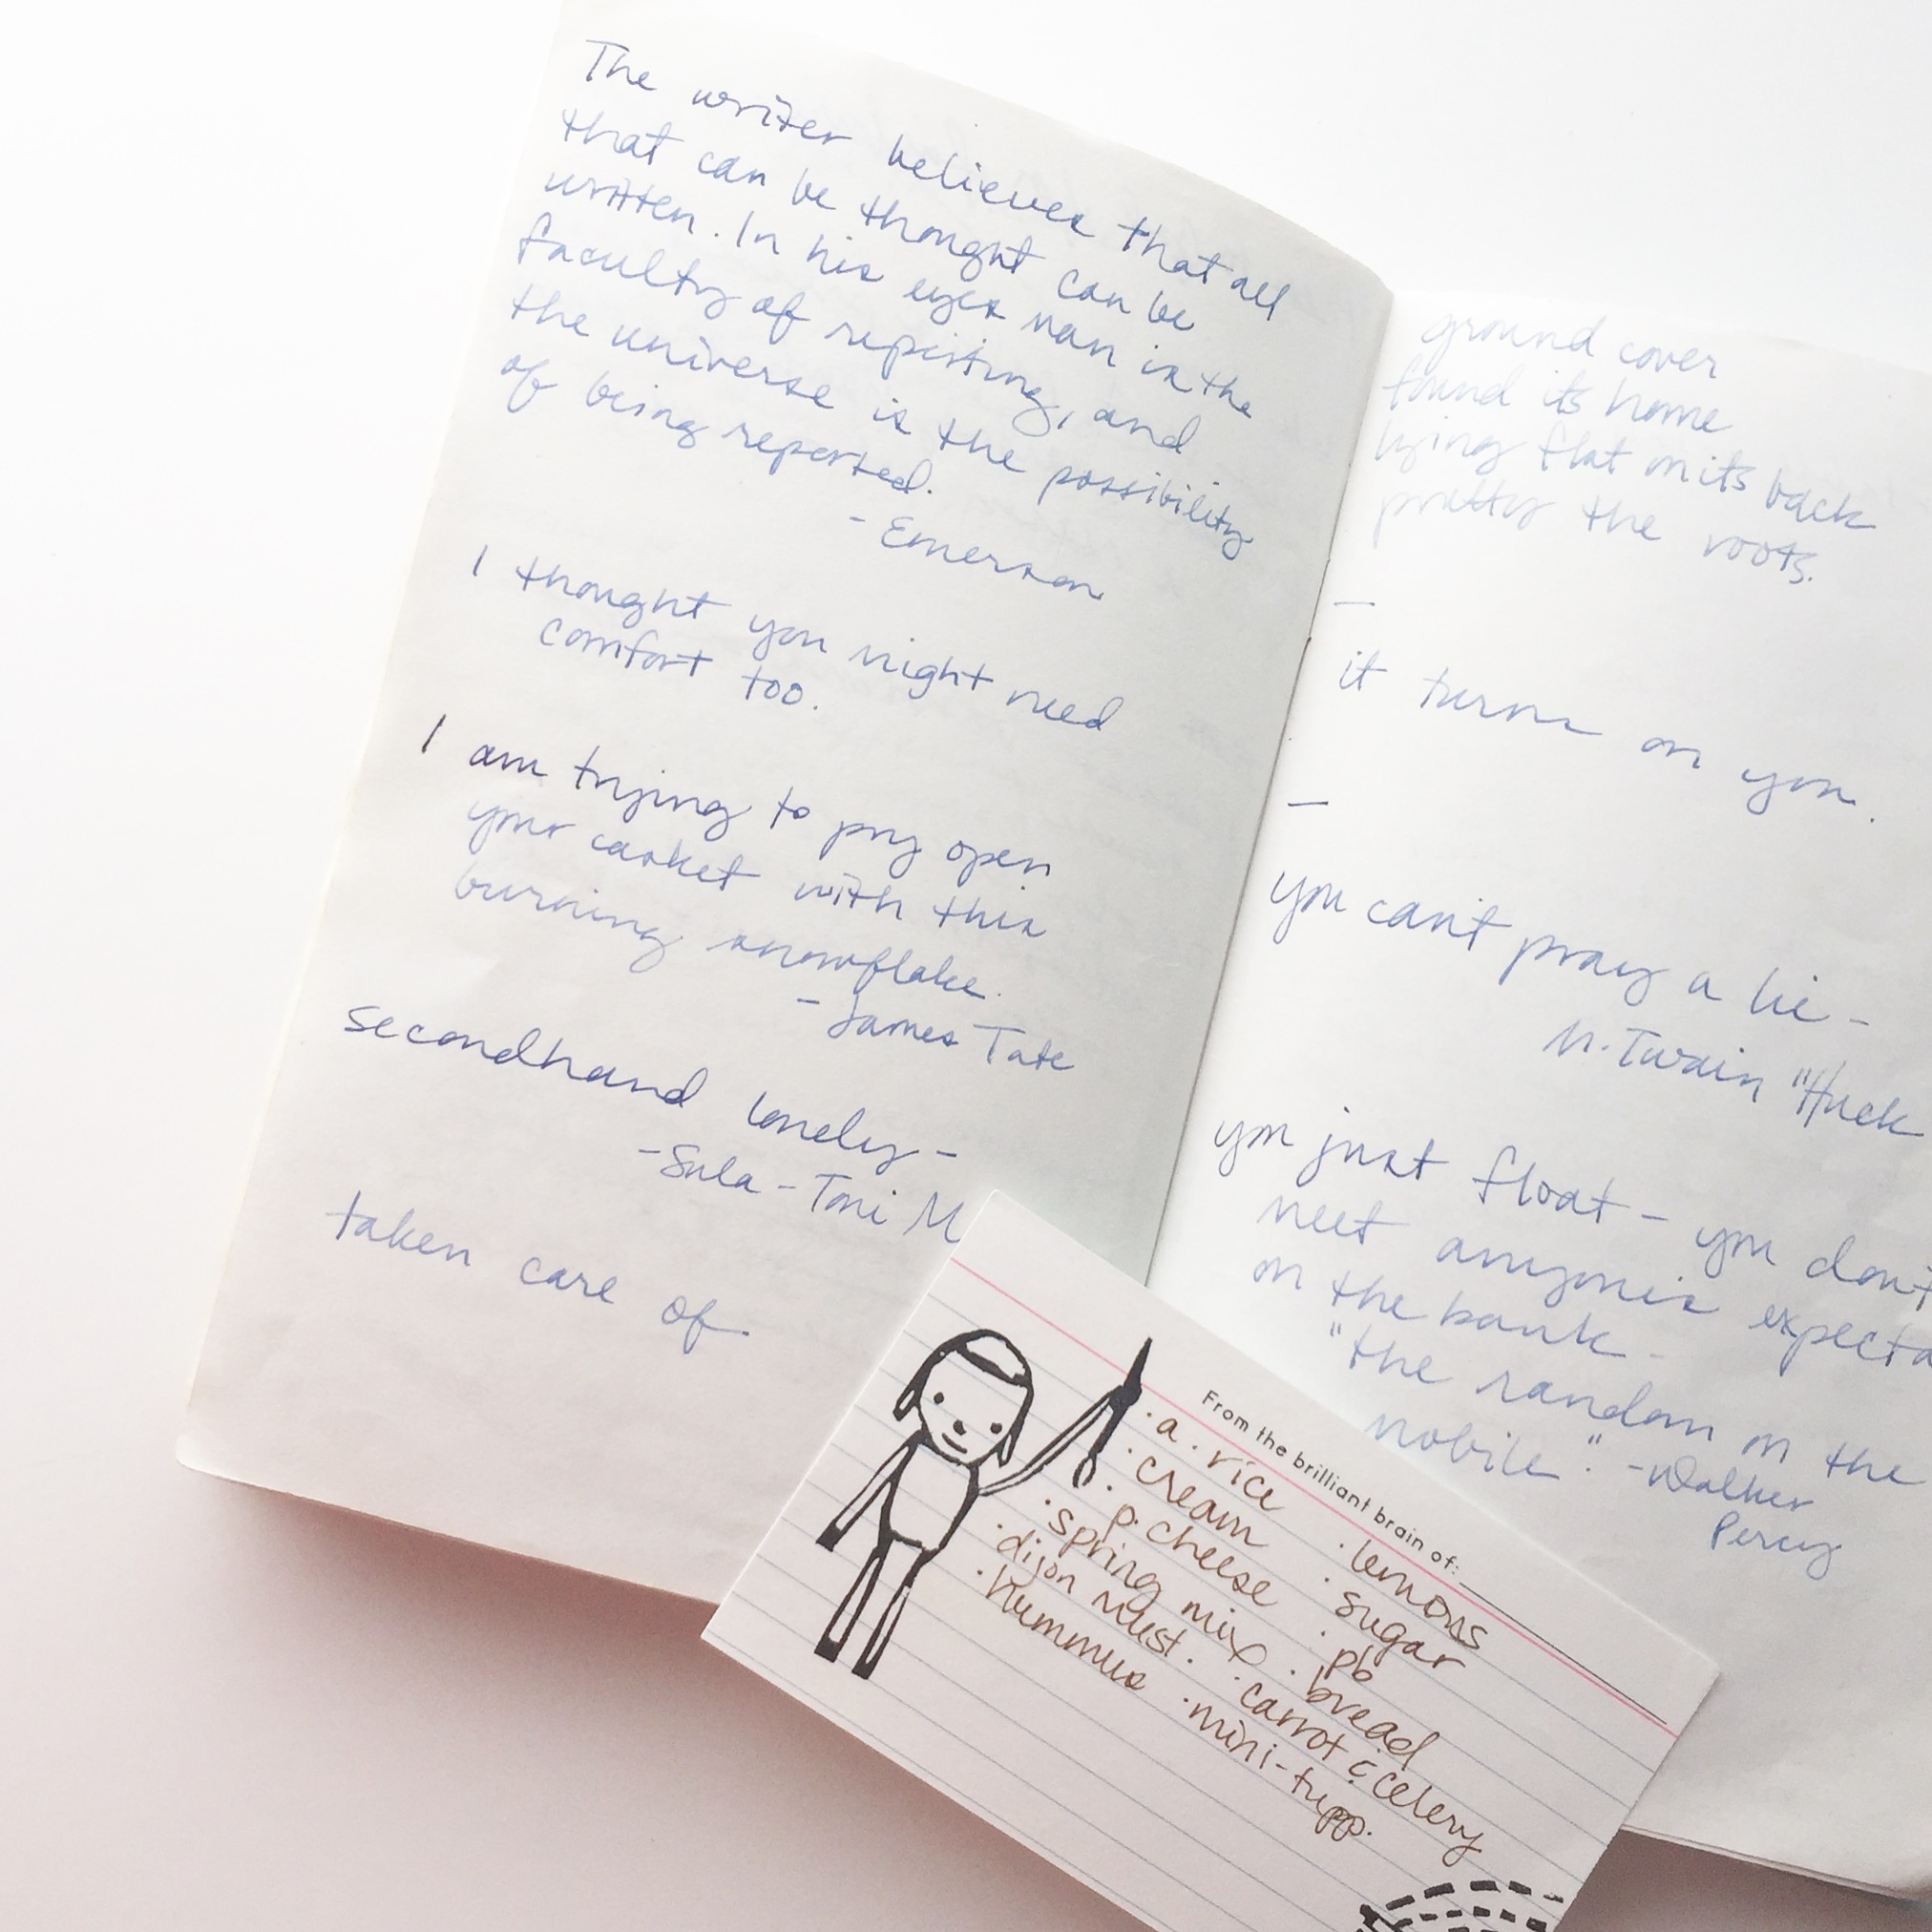 The writer believes that all
that can be thought can be
written. In his eyes man is the
faculty of reporting, and
the universe is the possibility
of being reported.
- Emerson
I thought you might need
comfort too.
I am trying to pry open
your casket with this
burning snowflake.
- James Tate
secondhand lonely -
- Sula - Toni M
taken care of.
ground cover
found its home
lying flat on its back
pretty the roots.
—
it turns on you.
—
you can't pray a lie -
M. Twain "Huck
you just float - you don't
meet anyone's expecta
on the bank -
"the random on the
mobile." - Walker
Percy
From the brilliant brain of:
· a. rice
· cream
· p. cheese
· spring mix
· dijon must.
· hummus
· lemons
· sugar
· pb
· bread
· carrot & celery
· mini-tupp.